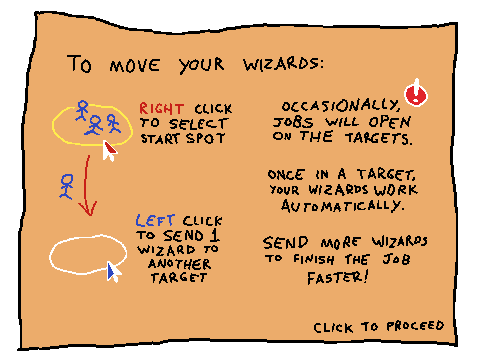 TO MOVE YOUR WIZARDS:
RIGHT CLICK
TO SELECT
START SPOT
LEFT CLICK
TO SEND 1
WIZARD TO
ANOTHER
TARGET
!
OCCASIONALLY,
JOBS WILL OPEN
ON THE TARGETS.
ONCE IN A TARGET,
YOUR WIZARDS WORK
AUTOMATICALLY.
SEND MORE WIZARDS
TO FINISH THE JOB
FASTER!
CLICK TO PROCEED